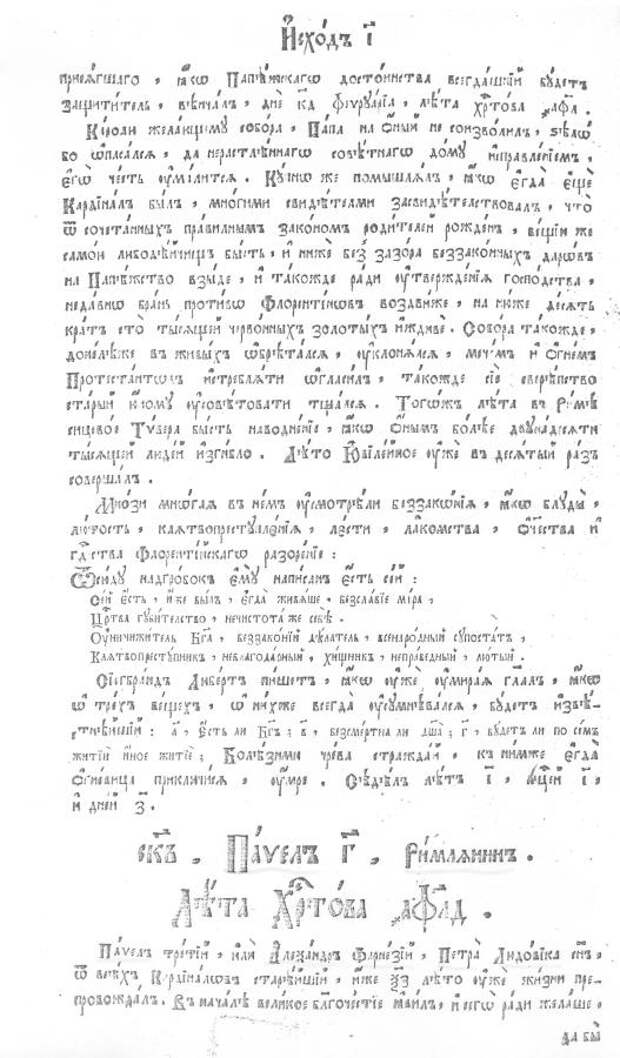 Исхо́дъ і҃
присѧ́гшаго, ꙗ́кѡ Папе́жскагѡ досто́инства всегда́шнїй бꙋ́детъ
защити́тель, вѣнча́лъ, днѐ к҃д феврꙋа́рїа, лѣ́та хр҃то́ва ҂а҃фл.
Ка́роли жела́ющемꙋ собо́ра, Па́па на ѻ́ный не соизво́лилъ, ѕѣлѡ̀
бо ѡ҆паса́лсѧ, да нерастлѣ́ннагѡ совѣ́тнагѡ до́мꙋ и҆справле́нїемъ,
є҆гѡ̀ че́сть ᲂу҆мали́тсѧ. Кꙋ́пнѡ же помышлѧ́лъ, ꙗ́кѡ є҆гда̀ є҆щѐ
Кардїна́лъ бы́лъ, мно́гими свидѣ́тели засвидѣ́тельствовалъ, что̀
ѿ сочета́нныхъ пра́вилнымъ зако́номъ роди́телей рожде́нъ, ве́щїй же
само́й любодѣ́йчищъ бы́сть, и҆ ни́же без̾ зазо́ра беззако́нныхъ даро́въ
на Папе́жство взы́де, и҆ тако́жде ра́ди ᲂу҆твержде́нїѧ госпо́дства,
неда́внѡ бра́нь про́тивѡ Флоренти́нѡвъ воздви́же, на ню́же де́сѧть
кра́тъ сто̀ ты́сѧщей черво́нныхъ золоты́хъ и҆ждивѐ. Собо́ра тако́жде,
до́нелѣже в̾ живы́хъ ѡ҆брѣта́лсѧ, ᲂу҆клонѧ́лсѧ, мече́мъ и҆ ѻ҆гне́мъ
Протеста́нтѡвъ и҆стреблѧ́ти ѡ҆гласи́лъ, тако́жде сїѐ свери́пство
ста́рый ю҆́номꙋ ᲂу҆совѣ́товати тща́лсѧ. Тогѡ́жъ лѣ́та в̾ Ри́мѣ
сицево́е Ти́вера бы́сть наводне́нїе, ꙗ́кѡ ѻ́нымъ бо́лѣе двуна́десѧти
ты́сѧщей люде́й и҆зги́бло. Лѣ́то Ю҆вїле́йное ᲂу҆жѐ в̾ десѧ́тый ра́зъ
соверша́лъ.
Мно́зи мнѡ́гаѧ в̾ не́мъ ᲂу҆смотрѣ́ли беззакѡ́нїѧ, ꙗ́кѡ блꙋды̀,
лю́тость, клѧтвопрестꙋплє́нїѧ, ле́сти, ла́комства, ѻ҆те́чества и҆
гдⷭ҇ства Флоренті́йскагѡ разоре́нїе:
Ѿсю́дꙋ надгро́бокъ є҆мꙋ̀ напи́санъ є҆́сть се́й:
Се́й є҆́сть, и҆́же бы́лъ, є҆гда̀ живѧ́ше, безсла́вїе мі́ра,
Црⷭ҇тва гꙋби́тельство, нечистота́ же себѣ̀.
Оу҆ничижи́тель Бг҃а, беззако́нїй дѣ́латель, всенаро́дный сꙋпоста́тъ,
Клѧтвопрестꙋ́пникъ, неблагода́рный, хи́щникъ, непра́ведный, лю́тый.
Сїгебра́ндъ Ли́бертъ пи́шетъ, ꙗ́кѡ ᲂу҆жѐ ᲂу҆мира́ѧ гл҃алъ, ꙗ́кѡ
ѡ҆ трє́хъ ве́щехъ, ѡ҆ ни́хже всегда̀ ᲂу҆сꙋмнѣва́лсѧ, бꙋ́детъ и҆звѣ́-
стнѣ́йшїй: а҃, є҆́сть ли Бг҃ъ; в҃, безсме́ртна ли дꙋша̀; г҃, бꙋ́детъ ли по се́мъ
житїѝ и҆но́е житїѐ; Болѣ́знми чре́ва стражда́й, к̾ ни́мже є҆гда̀
ѻ҆гне́вица приключи́сѧ, ᲂу҆́мре. Сѣдѣ́лъ лѣ́тъ і҃, мцⷭ҇ей і҃,
и҆ дне́й з҃.
с҃к҃ъ. Па́велъ г҃. Ри́млѧнинъ.
Лѣ́та Хрⷭ҇то́ва ҂а҃фл҃д.
Па́велъ тре́тїй, и҆лѝ А҆леѯа́ндръ Фарне́зїй, Петра̀ Лꙋдові́ка сн҃ъ,
ѿ всѣ́хъ Кардїна́лѡвъ старѣ́йшїй, и҆́же ѯ҃з лѣ́то ᲂу҆жѐ жи́зни пре-
провожда́лъ. В̾ нача́лѣ вели́кое бл҃гоче́стїе ꙗ҆ви́лъ, и҆ сегѡ̀ ра́ди жела́ше,
да бы̀